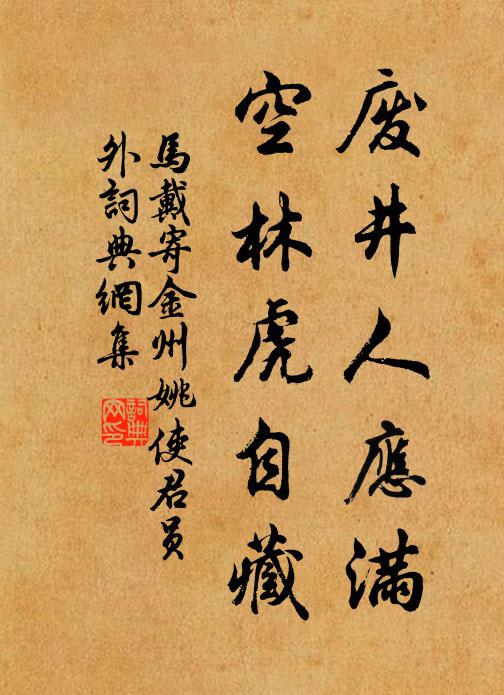 廢井人應滿
空林虎自藏
馬戴寄金州姚使君員
外詞典網集
詞典
网印